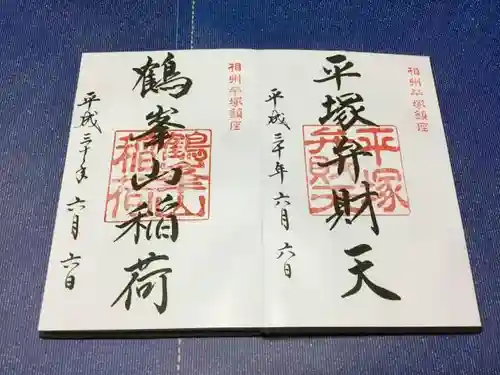 相州平塚鎮座
平塚弁財天
平塚弁財天
平成三十年 六月 六日
相州平塚鎮座
鶴峯山稲荷
鶴峯山稲荷
平成三十年 六月 六日